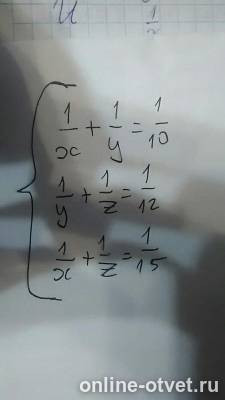 1/x + 1/y = 1/10
1/y + 1/z = 1/12
1/x + 1/z = 1/15
online-otvet.ru